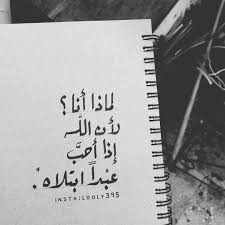 لماذا أنا ؟
لأن الله
إذا أحبَّ
عبْداً ابتلاه .
INSTA:LOOLY395